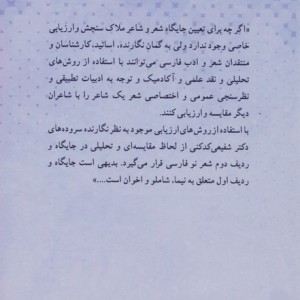 «اگر چه برای تعیین جایگاه شعر و شاعر ملاک سنجش و ارزیابی
خاصی وجود ندارد ولی به گمان نگارنده، اساتید، کارشناسان و
منتقدان شعر و ادب فارسی می‌توانند با استفاده از روش‌های
تحلیلی و نقد علمی و آکادمیک و توجه به ادبیات تطبیقی و
نظرسنجی عمومی و اختصاصی شعر یک شاعر را با شاعران
دیگر مقایسه و ارزیابی کنند.
با استفاده از روش‌های ارزیابی موجود به نظر نگارنده سروده‌های
دکتر شفیعی‌کدکنی از لحاظ مقایسه‌ای و تحلیلی در جایگاه و
ردیف دوم شعر نو فارسی قرار می‌گیرد. بدیهی است جایگاه و
ردیف اول متعلق به نیما، شاملو و اخوان است....»